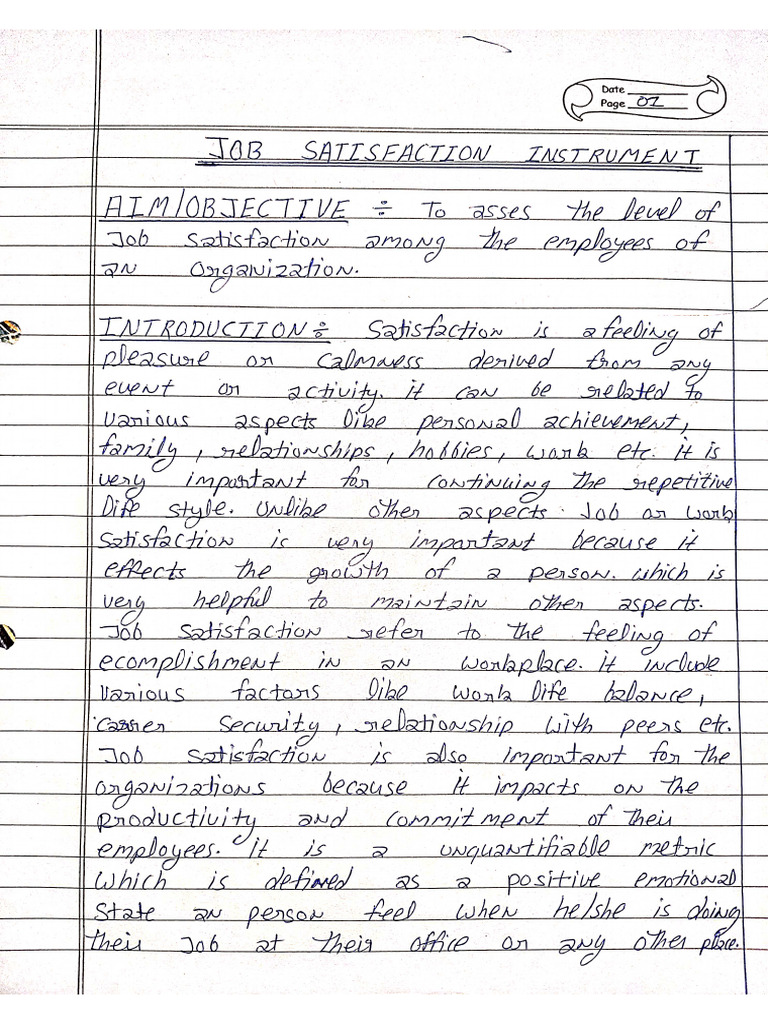 Date
Page 01
JOB SATISFACTION INSTRUMENT
AIM/OBJECTIVE ÷ To asses the level of
Job satisfaction among the employees of
an organization.
INTRODUCTION ÷ Satisfaction is a feeling of
pleasure or calmness derived from any
event or activity. it can be related to
various aspects like personal achievement,
family, relationships, hobbies, work etc. it is
very important for continuing the repetitive
life style. unlike other aspects Job or work
satisfaction is very important because it
effects the growth of a person. which is
very helpful to maintain other aspects.
Job satisfaction refer to the feeling of
ecomplishment in an workplace. it include
various factors like work life balance,
security, relationship with peers etc.
Job satisfaction is also important for the
organizations because it impacts on the
productivity and commitment of their
employees. it is a unquantifiable metric
which is defined as a positive emotional
state an person feel when he/she is doing
their Job at their office or any other place.